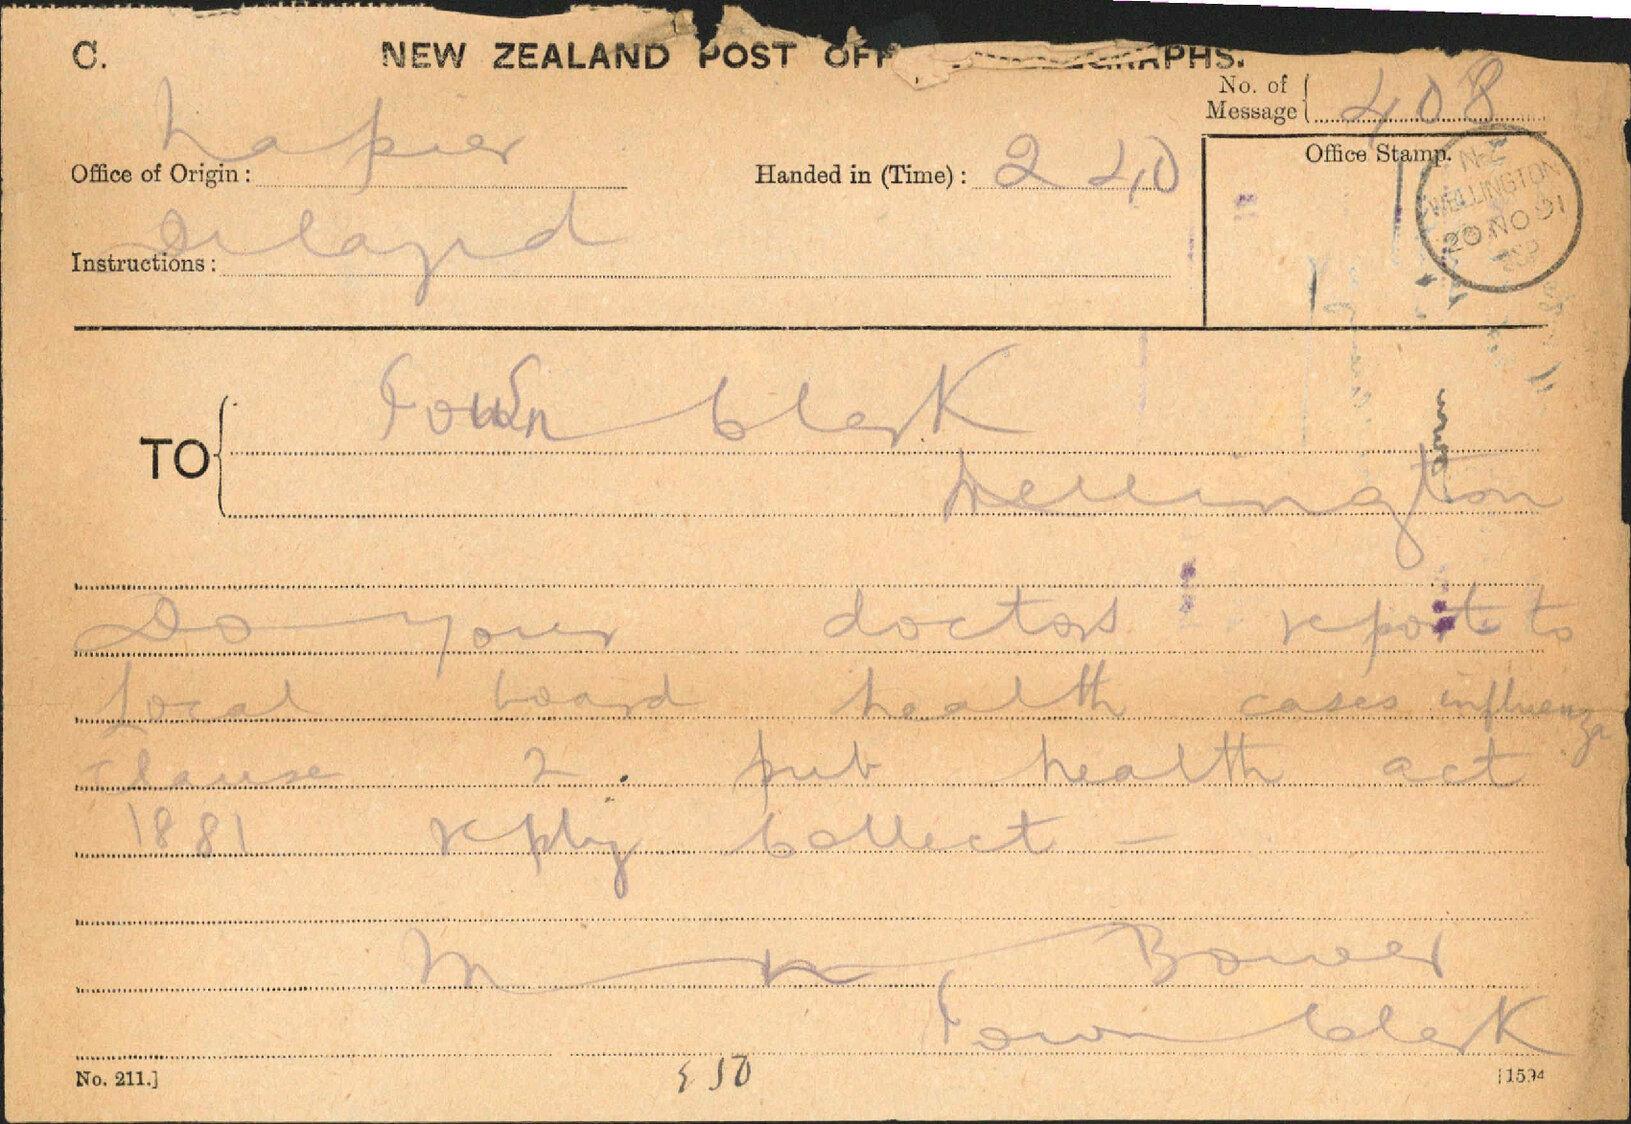 C. NEW ZEALAND POST OFF GRAPHS.
No. of
Message 408
Napier
Office of Origin :
Handed in (Time) : 2 40
Office Stamp.
N Z
WELLINGTON
20 NO 91
Delayed
Instructions :
Town Clerk
TO
Wellington
Do your doctors report to
Local board health cases influenza
Clause 2. pub health act
1881 reply Collect -
M N Bower
Town Clerk
No. 211.]